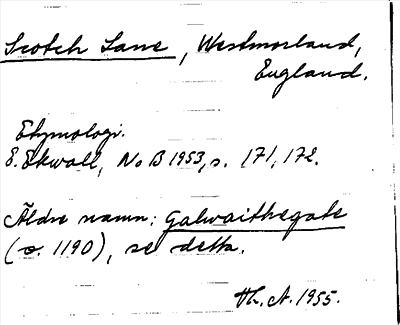 Scotch Lane, Westmorland,
England.
Etymologi.
E. Ekwall, NoB 1953, s. 171, 172.
Äldre namn: Galwaithegate
(o. 1190), se detta.
Th. A. 1955.